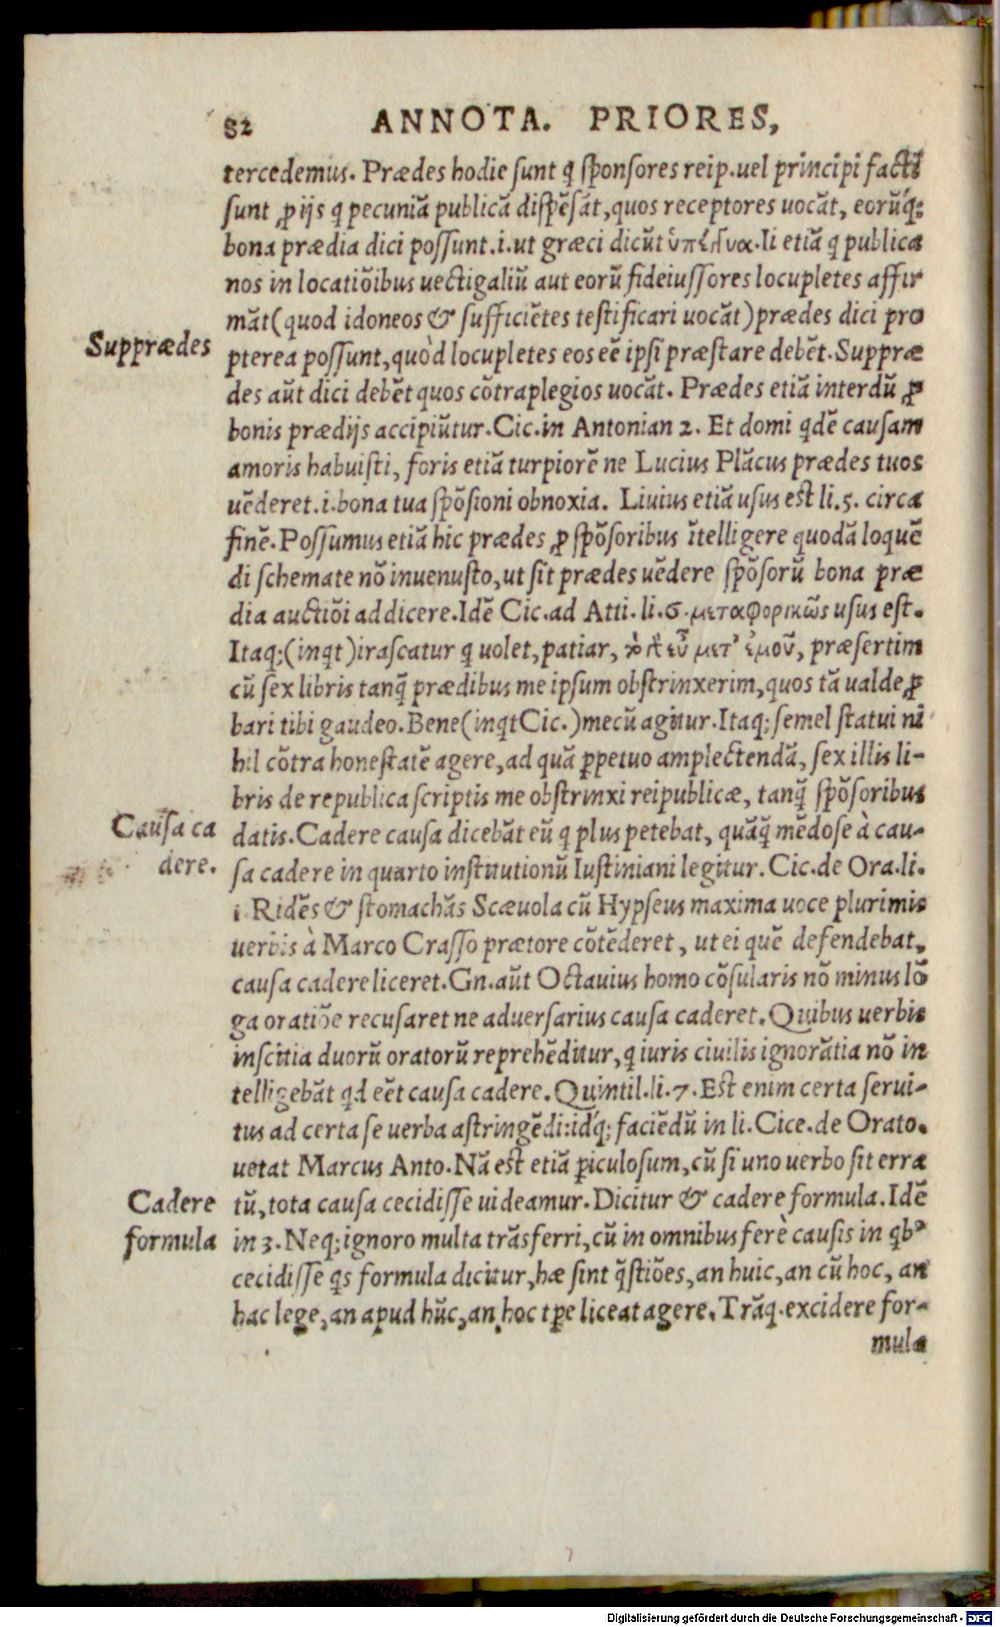 82 ANNOTA. PRIORES,
tercedemus. Prædes hodie sunt q̃ sponsores reip. uel principi facti
sunt ꝓ ijs q̃ pecuniã publicã dispẽsãt, quos receptores uocãt, eorũq́;
bona prædia dici possunt. i. ut græci dicũt ὑπέγγυα. Ii etiã q̃ publica
nos in locatiõibus uectigaliũ aut eorũ fideiussores locupletes affir
mãt (quod idoneos & sufficiẽtes testificari uocãt) prædes dici pro
Supprædes
pterea possunt, quòd locupletes eos eẽ ipsi præstare debẽt. Suppræ
des aũt dici debẽt quos cõtraplegios uocãt. Prædes etiã interdũ ꝓ
bonis prædijs accipiũtur. Cic. in Antonian 2. Et domi qdẽ causam
amoris habuisti, foris etiã turpiorẽ ne Lucius Plãcus prædes tuos
uẽderet. i. bona tua spõsioni obnoxia. Liuius etiã usus est li. 5. circa
finẽ. Possumus etiã hic prædes ꝓ spõsoribus ĩtelligere quodã loquẽ
di schemate nõ inuenusto, ut sit prædes uẽdere spõsorũ bona præ
dia auctiõi addicere. Idẽ Cic. ad Atti. li. 6. μεταφορικῶς usus est.
Itaq; (inqt) irascatur q̃ uolet, patiar, τὸ γὰρ εὖ μετ' ἐμοῦ, præsertim
cũ sex libris tanq̃ prædibus me ipsum obstrinxerim, quos tã ualde ꝓ
bari tibi gaudeo. Bene (inqt Cic.) mecũ agitur. Itaq; semel statui ni
hil cõtra honestatẽ agere, ad quã ꝑpetuo amplectendã, sex illis li-
bris de republica scriptis me obstrinxi reipublicæ, tanq̃ spõsoribus
Causa ca
dere.
datis. Cadere causa dicebãt eũ q̃ plus petebat, quãq̃ mẽdose à cau-
sa cadere in quarto institutionũ Iustiniani legitur. Cic. de Ora. li.
1 Ridẽs & stomachãs Scæuola cũ Hypseus maxima uoce plurimis
uerbis à Marco Crasso prætore cõtẽderet, ut ei quẽ defendebat,
causa cadere liceret. Gn. aũt Octauius homo cõsularis nõ minus lõ
ga oratiõe recusaret ne aduersarius causa caderet. Quibus uerbis
inscitia duorũ oratorũ reprehẽditur, q̃ iuris ciuilis ignorãtia nõ in
telligebãt qd eẽt causa cadere. Quintil. li. 7. Est enim certa serui-
tus ad certa se uerba astringẽdi: idq́; faciẽdũ in li. Cice. de Orato.
uetat Marcus Anto. Nã est etiã ꝑiculosum, cũ si uno uerbo sit erra
Cadere
formula
tũ, tota causa cecidisse uideamur. Dicitur & cadere formula. Idẽ
in 3. Neq; ignoro multa trãsferri, cũ in omnibus ferè causis in qbꝰ
cecidisse qs formula dicitur, hæ sint q̃stiões, an huic, an cũ hoc, an
hac lege, an apud hũc, an hoc tꝑe liceat agere. Trãq. excidere for-
mula
Digitalisierung gefördert durch die Deutsche Forschungsgemeinschaft - DFG